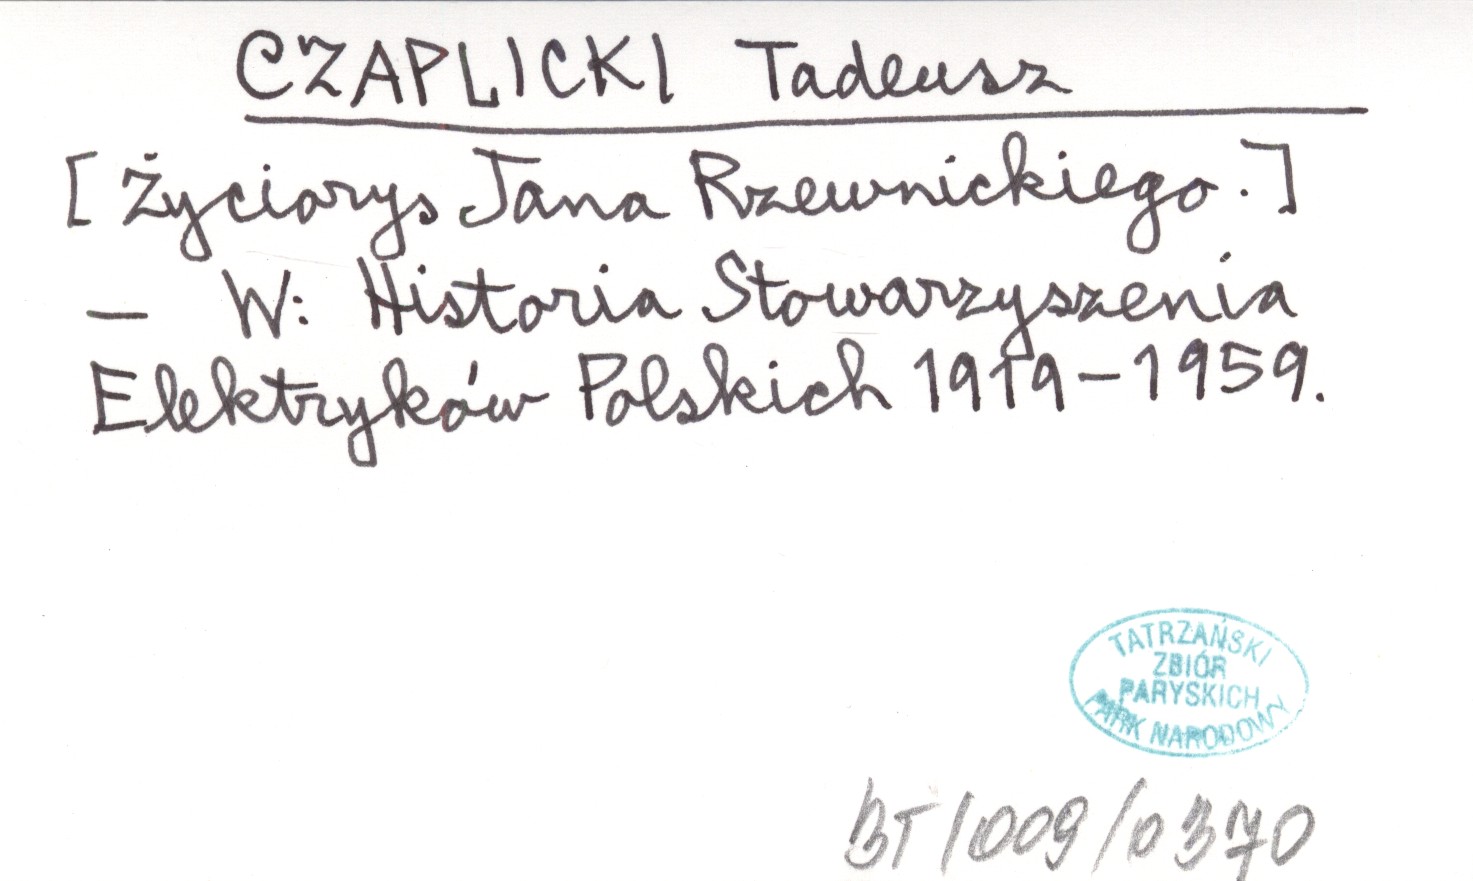 CZAPLICKI Tadeusz
[Życiorys Jana Rzewnickiego.]
— W: Historia Stowarzyszenia
Elektryków Polskich 1919–1959.
TATRZAŃSKI
ZBIÓR
PARYSKICH
PARK NARODOWY
BT/009/0370